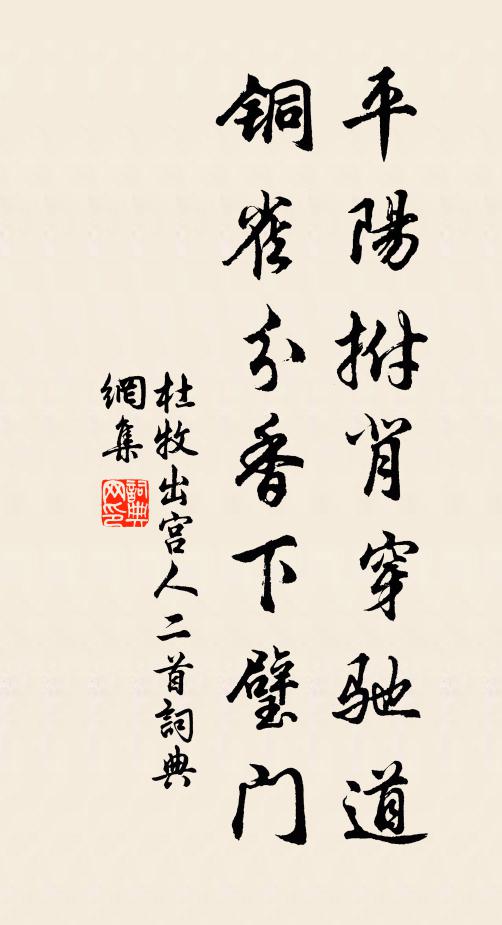 平陽拊背穿馳道
銅雀分香下璧门
杜牧出宫人二首詞典
網集
詞典网印